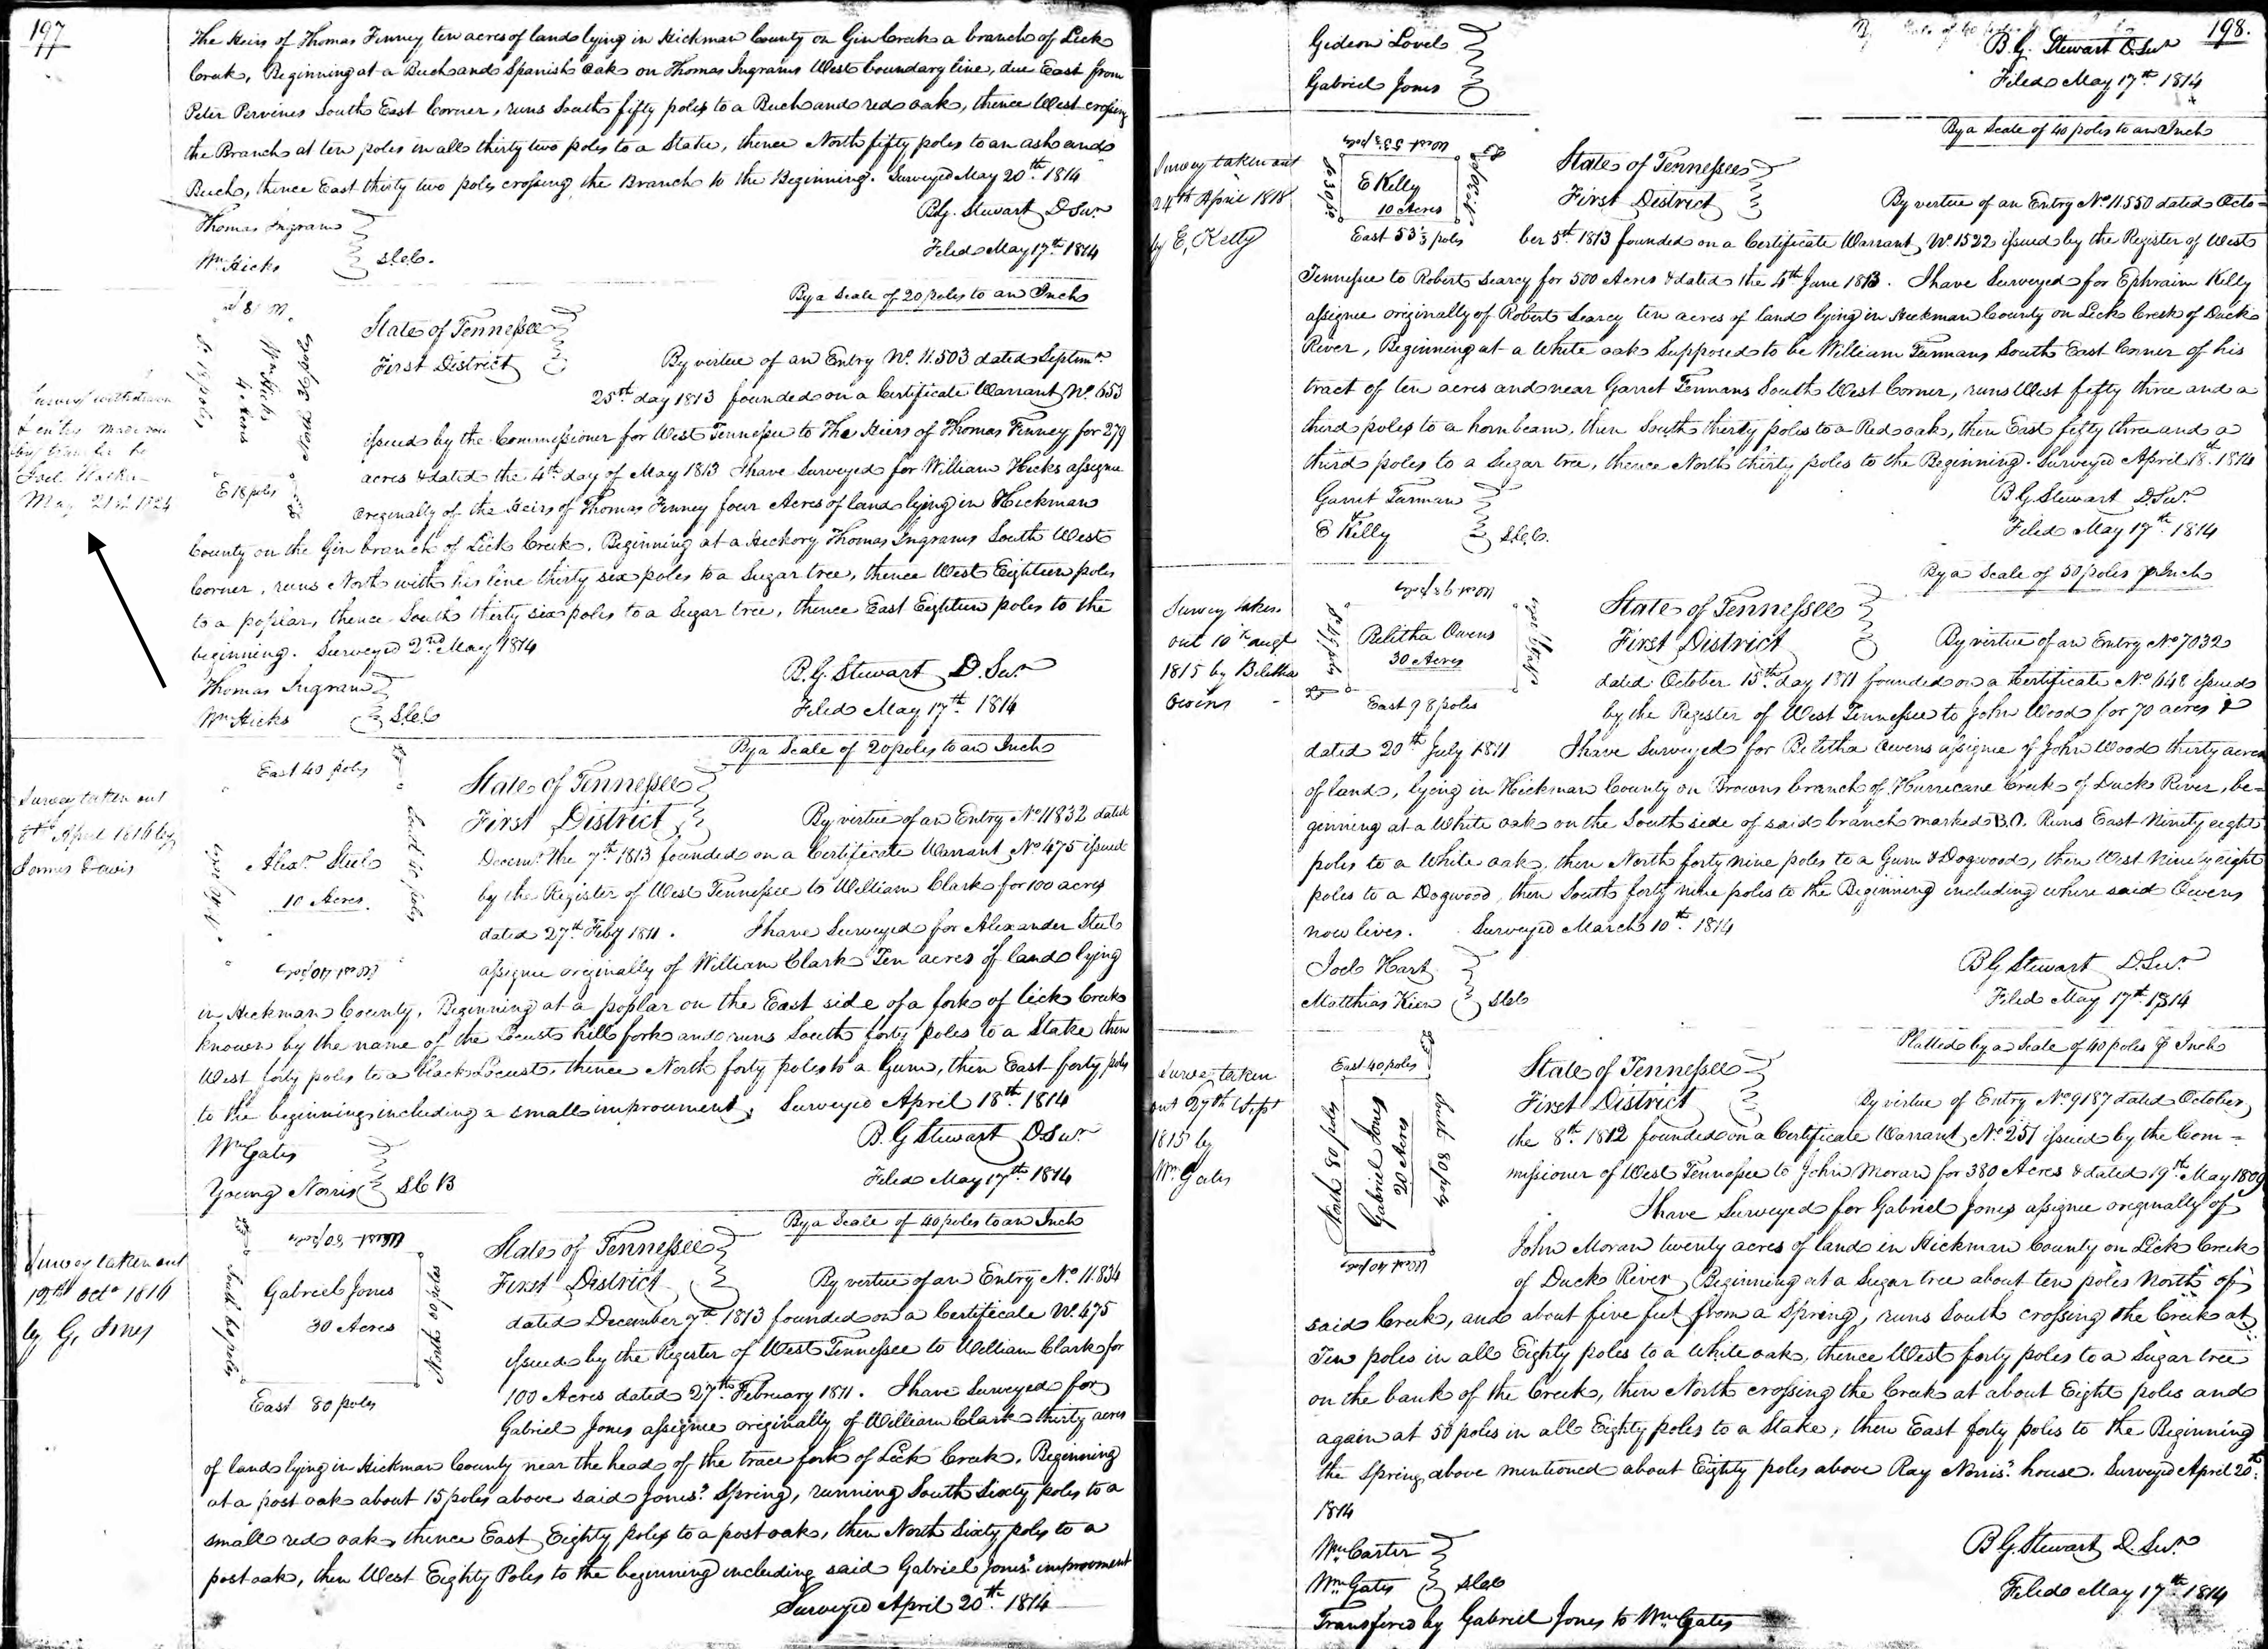 197
The Heirs of Thomas Finney ten acres of land lying in Hickman County on Gin Creek a branch of Lick
Creek, Beginning at a Buch and Spanish Oak on Thomas Ingrams West boundary line, due East from
Peter Pervines South East Corner, runs South fifty poles to a Buch and red oak, thence West crossing
the Branch at ten poles in all thirty two poles to a Stake, thence North fifty poles to an ash and
Buch, thence East thirty two poles crossing the Branch to the Beginning. Surveyed May 20th 1814
Thomas Ingram
Wm Hicks S.C.C.
B.G. Stewart D Sur
Filed May 17th 1814
By a Scale of 20 poles to an Inch
W 18 po
S. 36 poles
Wm Hicks
4 Acres
North 36 poles
E 18 poles
Survey withdrawn
& entry made
by transfer to
Joel Walker
May 21st 1824
State of Tennessee
First District
By virtue of an Entry No. 11.503 dated Septmr
25th day 1813 founded on a Certificate Warrant No. 653
issued by the Commissioner for West Tennessee to The Heirs of Thomas Finney for 279
acres & dated the 4th day of May 1813 I have Surveyed for William Hicks assignee
originally of the Heirs of Thomas Finney four Acres of land lying in Hickman
County on the Gin branch of Lick Creek. Beginning at a Hickory Thomas Ingrams South West
Corner, runs North with his line thirty six poles to a Sugar tree, thence West Eighteen poles
to a poplar, thence South thirty six poles to a Sugar tree, thence East Eighteen poles to the
beginning. Surveyed 2nd May 1814
Thomas Ingram
Wm Hicks S.C.C
B.G. Stewart D. Sur
Filed May 17th 1814
By a Scale of 20 poles to an Inch
East 40 poles
South 40 poles
Alexr Steel
10 Acres
West 40 poles
Survey taken out
April 1816 by
James Davis
State of Tennessee
First District
By virtue of an Entry No 11832 dated
Decemr the 7th 1813 founded on a Certificate Warrant No 475 issued
by the Register of West Tennessee to William Clark for 100 acres
dated 27th Feby 1811. I have Surveyed for Alexander Steel
assignee originally of William Clark Ten acres of land lying
in Hickman County. Beginning at a poplar on the East side of a fork of Lick Creek
known by the name of the Locust hill fork and runs South forty poles to a Stake then
West forty poles to a black Locust, thence North forty poles to a Gum, then East forty poles
to the beginning including a small improvement. Surveyed April 18th 1814
Wm Gates
Young Norris S C B
B. G Stewart D Sur
Filed May 17th 1814
By a Scale of 40 poles to an Inch
West 80 poles
South 60 poles
Gabriel Jones
30 Acres
North 60 poles
East 80 poles
Survey taken out
19th Octo 1816
by G. Jones
State of Tennessee
First District
By vertue of an Entry No. 11.834
dated December 7th 1813 founded on a Certificate No. 475
issued by the Register of West Tennessee to William Clark for
100 Acres dated 27th February 1811. I have Surveyed for
Gabriel Jones assignee originally of William Clark thirty acres
of land lying in Hickman County near the head of the trace fork of Lick Creek. Beginning
at a post oak about 15 poles above said Jones's Spring, running South Sixty poles to a
small red oak, thence East Eighty poles to a post oak, then North Sixty poles to a
post oak, then West Eighty Poles to the beginning including said Gabriel Jones's improvement
Surveyed April 20th 1814
198.
Gideon Lovel
Gabriel Jones
B.G. Stewart D. Sur
Filed May 17th 1814
By a Scale of 40 poles to an Inch
West 53 1/3 poles
So 30 po
E Kelly
10 Acres
No 30 po
East 53 1/3 poles
Survey taken out
24th April 1818
by E, Kelly
State of Tennessee
First District
By vertue of an Entry No. 11.550 dated Octo=
ber 5th 1813 founded on a Certificate Warrant No. 1522 issued by the Register of West
Tennessee to Robert Searcy for 500 Acres & dated the 4th June 1813. I have Surveyed for Ephraim Kelly
assignee originally of Robert Searcy ten acres of land lying in Hickman County on Lick Creek of Duck
River, Beginning at a White oak Supposed to be William Turmans South East Corner of his
tract of ten acres and near Garret Turmans South West Corner, runs West fifty three and a
third poles to a hornbeam, then South thirty poles to a Red oak, then East fifty three and a
third poles to a Sugar tree, thence North thirty poles to the Beginning. Surveyed April 18th 1814
Garrit Turman
E Kelly S.C.C.
B G Stewart D. Sur
Filed May 17th 1814
By a Scale of 50 poles pr Inch
West 98 poles
So 49 poles
Belitha Owens
30 Acres
No 49 poles
East 98 poles
Survey taken
out 10th augt
1815 by Belitha
Owens
State of Tennessee
First District
By virtue of an Entry No 7032
dated October 15th day 1811 founded on a Certificate No 648 issued
by the Register of West Tennessee to John Wood for 70 acres &
dated 20th July 1811 I have Surveyed for Belitha Owens assignee of John Wood thirty acres
of land, lying in Hickman County on Browns branch of Hurricane Creek of Duck River, be=
ginning at a White oak on the South side of said branch marked B.O. Runs East Ninety eight
poles to a White oak, then North forty nine poles to a Gum & Dogwood, then West Ninety eight
poles to a Dogwood, then South forty nine poles to the Beginning including where said Owens
now lives. Surveyed March 10th 1814
Joel Hart
Matthias Kien S.C.C
B G Stewart D. Sur
Filed May 17th 1814
Platted by a Scale of 40 poles pr Inch
East 40 poles
North 80 poles
Gabriel Jones
20 Acres
South 80 poles
West 40 poles
Survey taken
out 27th Sept
1815 by
Wm Gates
State of Tennessee
First District
By virtue of Entry No. 9187 dated October
the 8th 1812 founded on a Certificate Warrant No. 251 issued by the Com=
missioner of West Tennessee to John Moran for 380 Acres & dated 19th May 1809
I have Surveyed for Gabriel Jones assignee originally of
John Moran twenty acres of land in Hickman County on Lick Creek
of Duck River, Beginning at a Sugar tree about ten poles North of
said Creek, and about five feet from a Spring, runs South crossing the Creek at
Ten poles in all Eighty poles to a White oak, thence West forty poles to a Sugar tree
on the bank of the Creek, then North crossing the Creek at about Eight poles and
again at 50 poles in all Eighty poles to a Stake, then East forty poles to the Beginning
the Spring above mentioned about Eighty poles above Ray Norris's house. Surveyed April 20th
1814
Wm Carter
Wm Gates S.C.C
B G. Stewart D. Sur
Filed May 17th 1814
Transfered by Gabriel Jones to Wm Gates